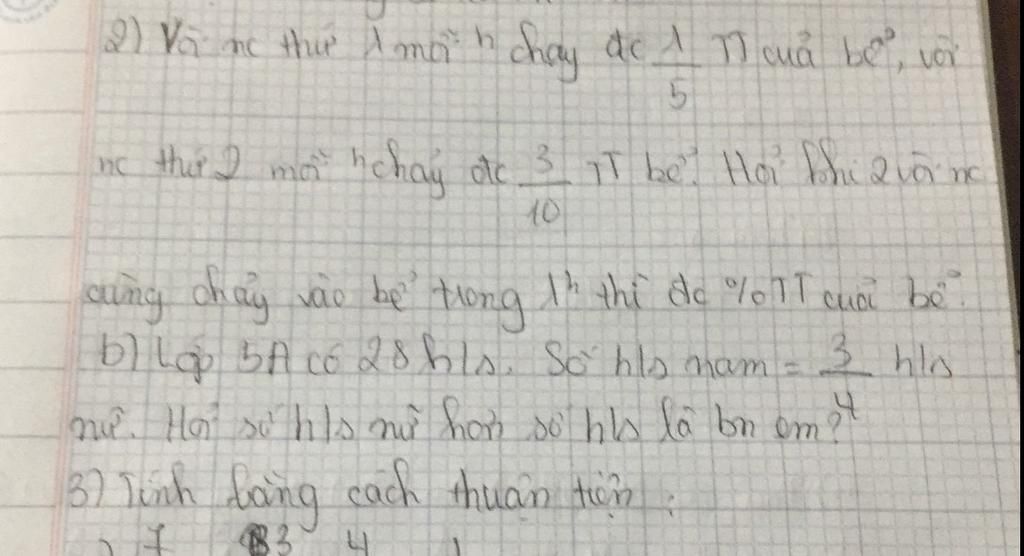 2) Vòi nc thứ 1 mỗi h chảy đc 1/5 TT của bể, vòi
nc thứ 2 mỗi h chảy đc 3/10 TT bể. Hỏi khi 2 vòi nc
cùng chảy vào bể trong 1h thì đc % TT của bể.
b) Lớp 5A có 28 h/s. Số h/s nam = 3/4 h/s
nữ. Hỏi số h/s nữ hơn số h/s là bn em?
3) Tính bằng cách thuận tiện :
7 3 4 1